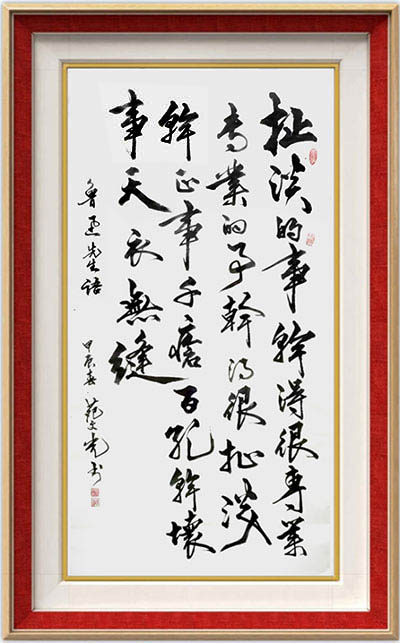 扯淡的事幹得很專業
专業的事幹得很扯淡
幹正事千瘡百孔幹壞
事天衣無縫
鲁迅先生語
甲辰春 范文光书